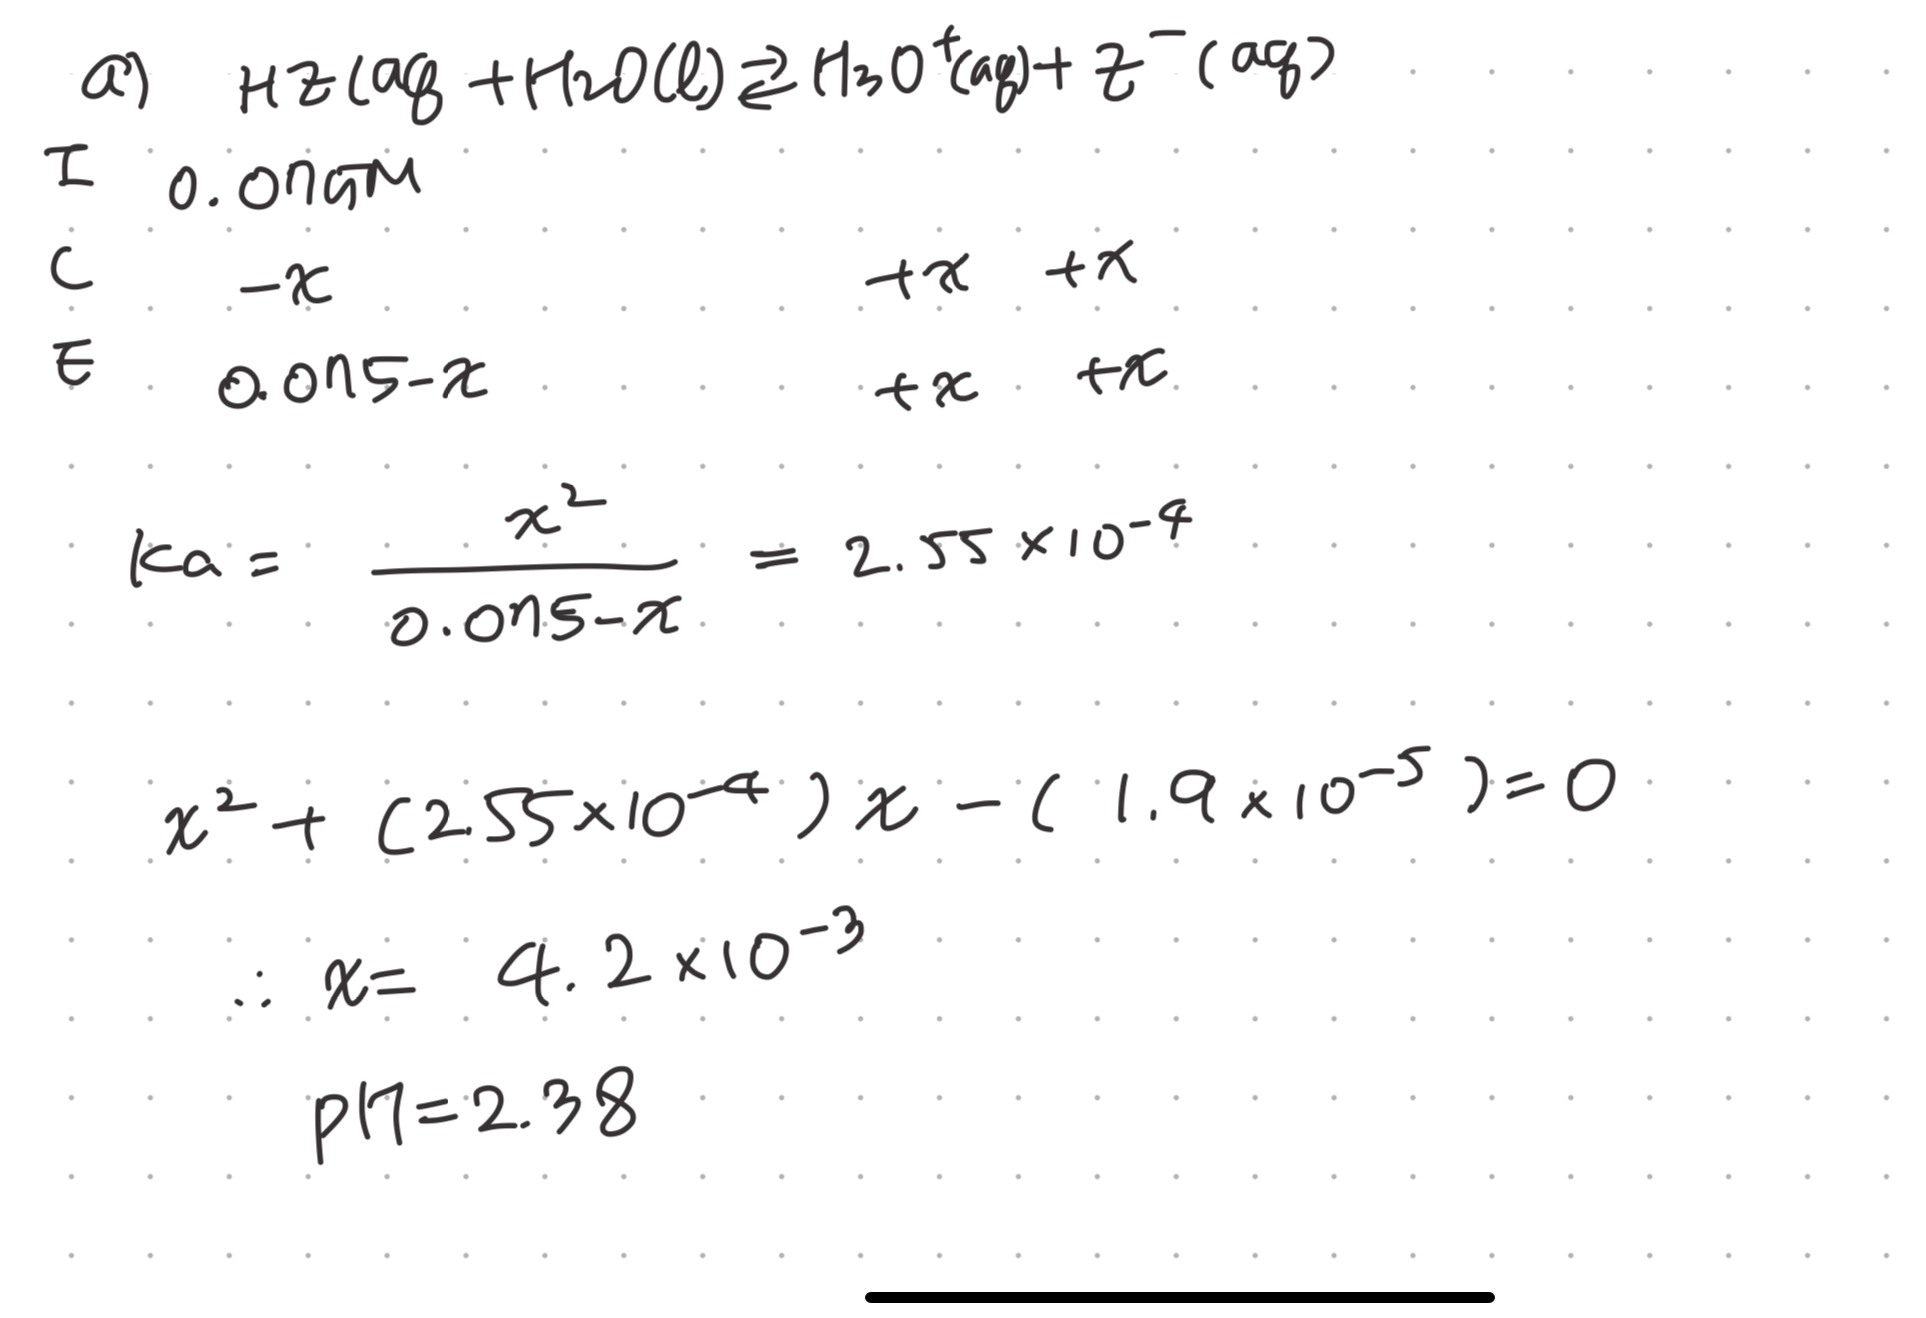 a) HZ(aq + H₂O(l) ⇄ H₃O⁺(aq) + Z⁻(aq)
I 0.075M
C -x +x +x
E 0.075-x +x +x
Ka = x² / 0.075-x = 2.55×10⁻⁴
x² + (2.55×10⁻⁴)x - (1.9×10⁻⁵) = 0
∴ x = 4.2×10⁻³
pH = 2.38